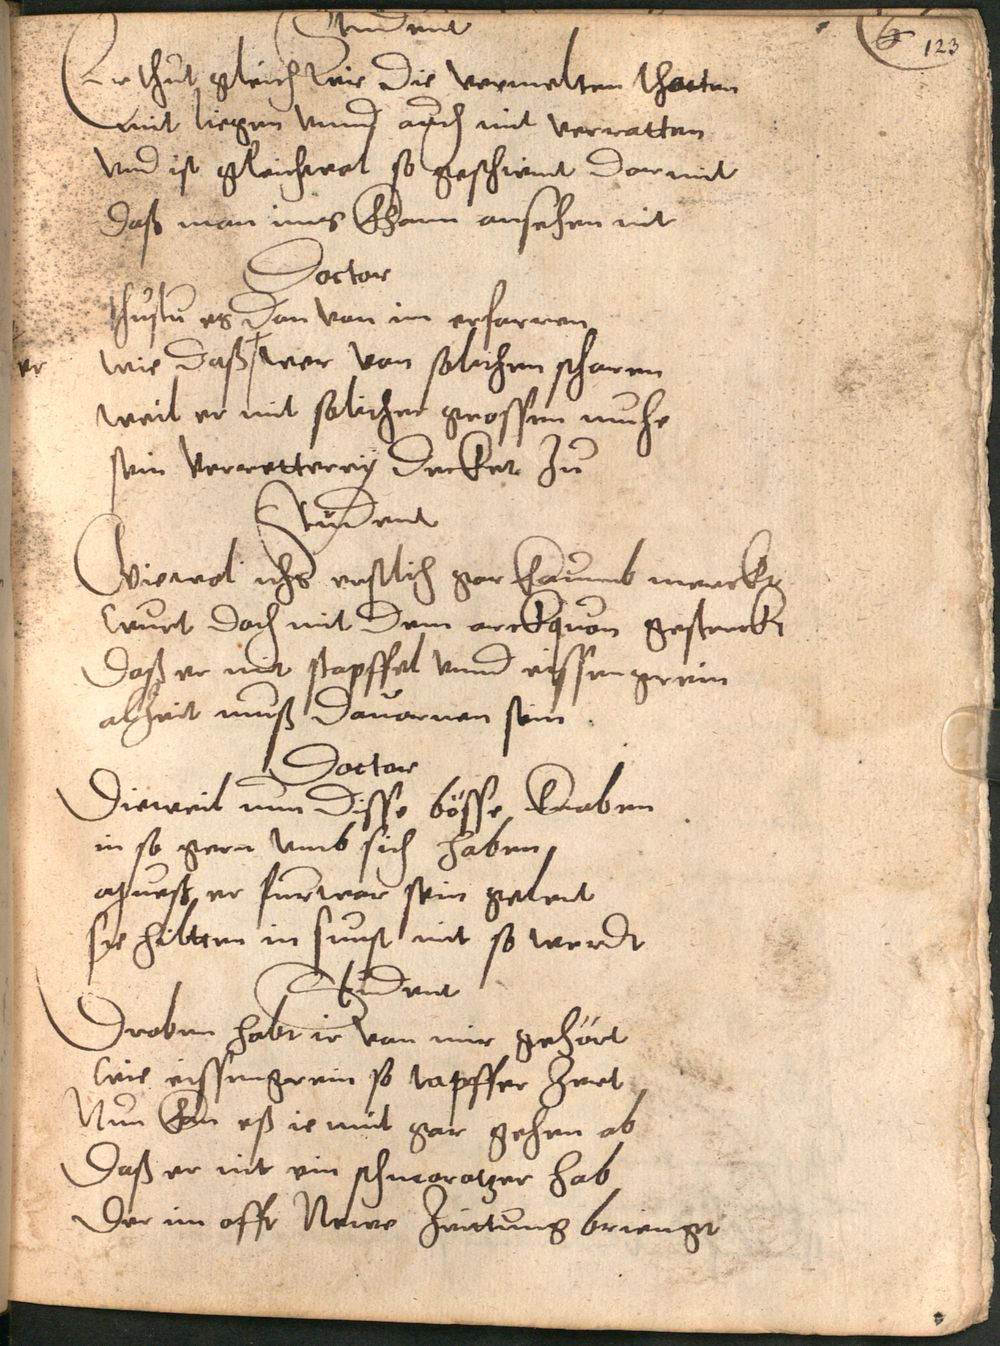 Student
6
123
Er thut gleich wie die vermelten thatten
mit liegen vnnd auch mit verratten
vnd ist gleichwol so geschwint darmit
daß man ims Chann ansehen nit
Doctor
thustu es dan von im erfarren
er wie daß wer von solichen scharen
weil er mit solicher grossen muhe
sein verretterey decket zu
Student
Wiewol ichs erstlich gar Caumb merckt
wurt doch mit dem gesterckt
daß er mit stapffel vnnd eissengrein
alzeit muß dauornen sein
Doctor
Dieweil nun disse bösse Knaben
in so gern vmb sich haben
er furwar sein
sie hiltten in sunst nit so werdt
Student
Droben habt ir von mir gehört
wie eissengrein so tapffer Zert
Nun Chan eß ie nüt gar gehen ab
Daß er nit ein schmarotzer hab
Der im offt Newe Zeittung brienget